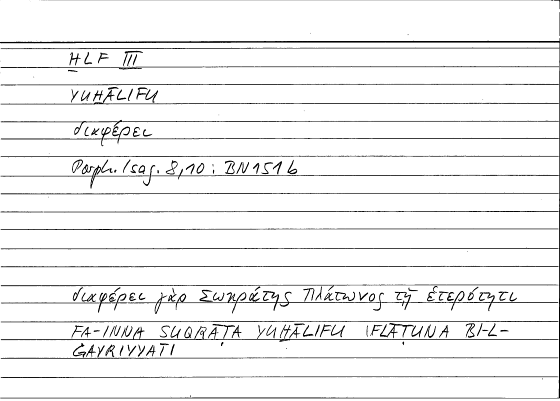 ḪLF III
YUḪĀLIFU
διαφέρει
Porph. Isag. 8,10 : BN 151 b
διαφέρει γὰρ Σωκράτης Πλάτωνος τῇ ἑτερότητι
FA-INNA SUQRĀṬA YUḪĀLIFU IFLĀṬUNA BI-L-
ĠAYRIYYATI